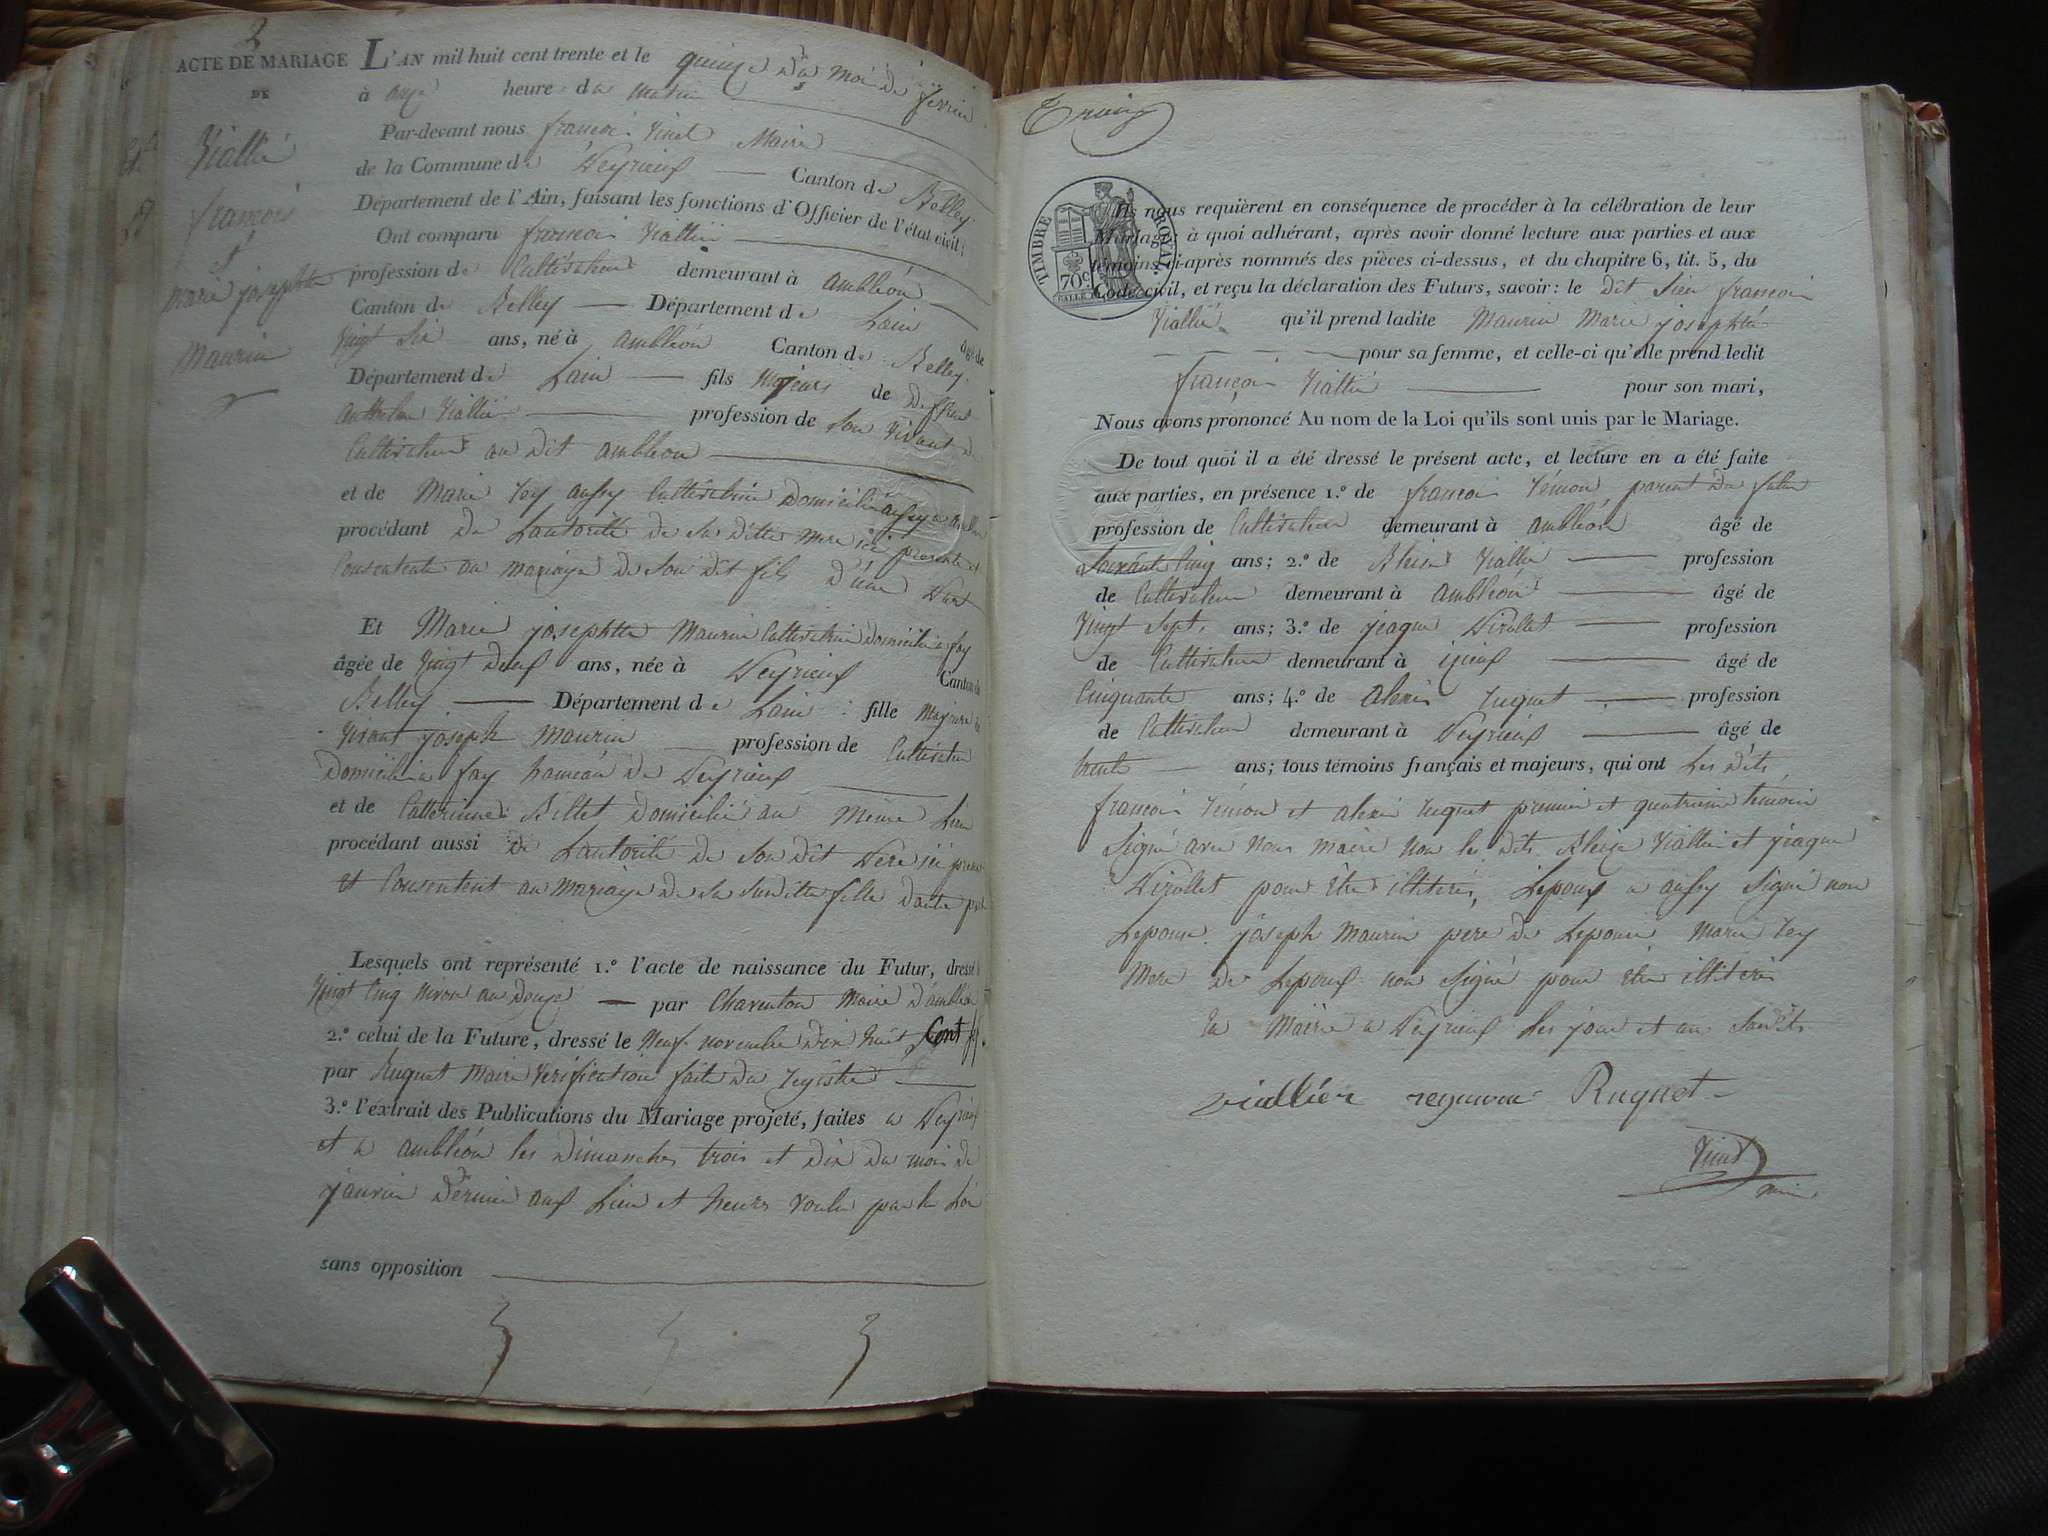 2
ACTE DE MARIAGE
DE
Viallié
françois
et
marie josephtte
Maurin
L'AN mil huit cent trente et le quinze du moi de février
à onze heure du matin
Par-devant nous françoi Vinet Maire
de la Commune de Peyrieux Canton de Belley
Département de l'Ain, faisant les fonctions d'Officier de l'état civil;
Ont comparu françoi Viallié
profession de Cultivateur demeurant à ambléon
Canton de Belley Département de Lain âgé de
Vingt Six ans, né à ambléon Canton de Belley
Département de Lain fils Majeur de deffunt
anthelme Viallié profession de Son Vivant de
Cultivateur au dit ambléon
et de Marie Rey aussy Cultivatrice domicilié aussy a
procédant de Lautorité de Sa ditte Mere ici presente et
Consentente au mariage de Son dit fils d'une Part
Et Marie josephtte Maurin Cultivatrice domicilié a fay
âgée de Vingt deux ans, née à Peyrieux Canton de
Belley Département de Lain fille Majeure de
Vivant joseph Maurin profession de Cultivateur
domicilié a fay hameau de Peyrieux
et de Catterinne Billet domicilié au Meme Lieu
procédant aussi de Lautorité de Son dit Pere ici present
et Consentent au mariage de Sa Susditte fille dautre part
Lesquels ont représenté 1.º l'acte de naissance du Futur, dressé
Vingt Cinq nivose an douze par Charenton Maire d'ambléon
2.º celui de la Future, dressé le Neuf novembre dix huit Cent
par Ruguet Maire Vérification faite du registre
3.º l'extrait des Publications du Mariage projeté, faites a Peyrieux
et a ambléon les dimanches trois et dix du mois de
janvier dernier aux Lieu et heures voulu par la Loi
sans opposition
TIMBRE ROYAL
70c
Ils nous requièrent en conséquence de procéder à la célébration de leur
Mariage à quoi adhérant, après avoir donné lecture aux parties et aux
témoins ci-après nommés des pièces ci-dessus, et du chapitre 6, tit. 5, du
Code civil, et reçu la déclaration des Futurs, savoir: le dit Sieur françoi
Viallié qu'il prend ladite Maurin Marie josephtte
pour sa femme, et celle-ci qu'elle prend ledit
françoi Viallié pour son mari,
Nous avons prononcé Au nom de la Loi qu'ils sont unis par le Mariage.
De tout quoi il a été dressé le présent acte, et lecture en a été faite
aux parties, en présence 1.º de françoi parent du futur
profession de Cultivateur demeurant à ambléon âgé de
Soixante Cinq ans; 2.º de Viallié profession
de Cultivateur demeurant à ambléon âgé de
Vingt Sept ans; 3.º de jeaque Pirollet profession
de Cultivateur demeurant à izieux âgé de
Cinquante ans; 4.º de alexis ruguet profession
de Cultivateur demeurant à Peyrieux âgé de
trente ans; tous témoins français et majeurs, qui ont Les dits
françoi et alexi ruguet premier et quatrieme témoin
Signé avec Nous maire Non les dits Viallié et jeaque
Pirollet pour être illitéré, Lepoux a aussy Signé non
Lepouse joseph Maurin pere de Lepouse Marie Rey
Mere de Lepoux non Signé pour être illitéré
En Mairie a Peyrieux les jour et an Susdits
viallier Ruguet
Vinet
maire